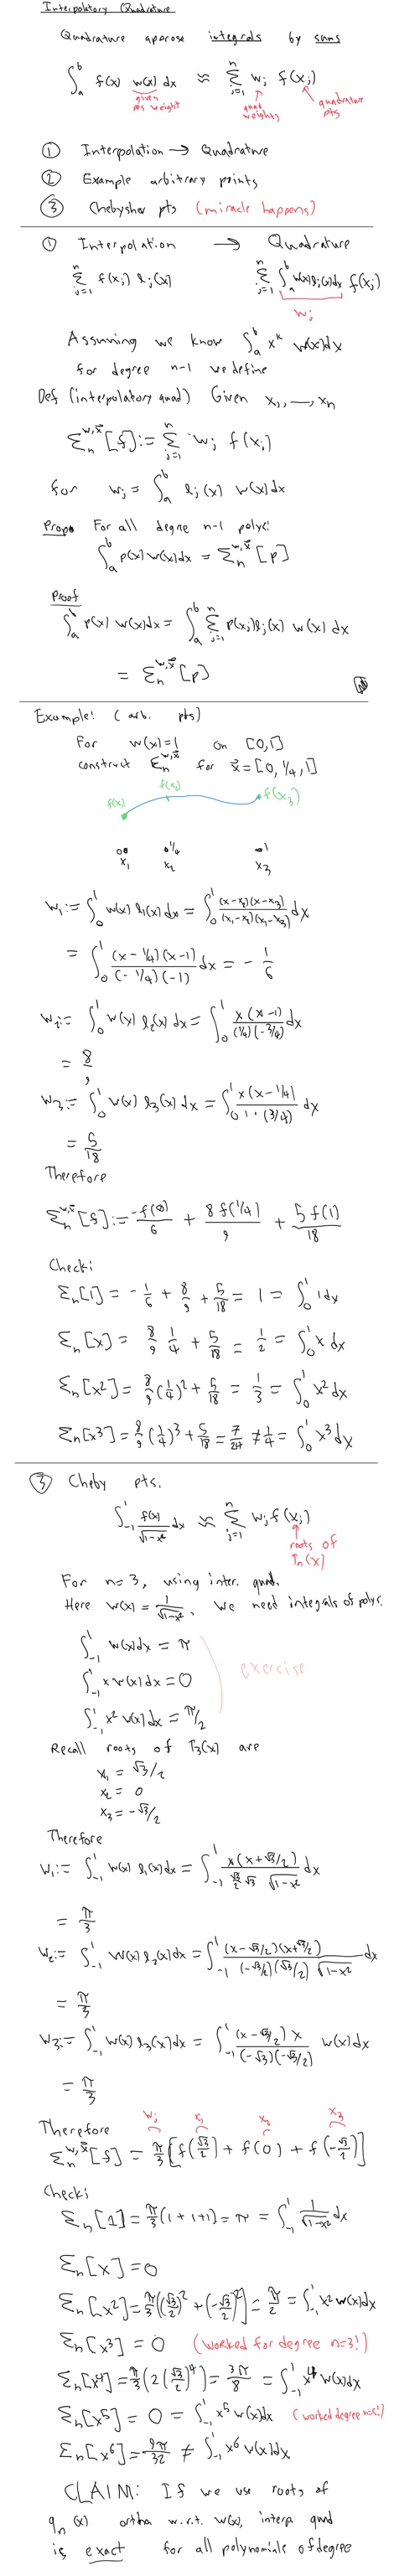 Interpolatory Quadrature
Quadrature approx integrals by sums
∫_a^b f(x) w(x) dx ≈ Σ_{j=1}^n w_j f(x_j)
given weight
quad weights
quadrature pts
① Interpolation → Quadrature
② Example arbitrary points
③ Chebyshev pts (miracle happens)
① Interpolation → Quadrature
Σ_{j=1}^n f(x_j) l_j(x) Σ_{j=1}^n ∫_a^b w(x) l_j(x) dx f(x_j)
w_j
Assuming we know ∫_a^b x^k w(x) dx
for degree n-1 we define
Def (interpolatory quad) Given x_1, —, x_n
Σ_n^{w,x⃗}[f] := Σ_{j=1}^n w_j f(x_j)
for w_j = ∫_a^b l_j(x) w(x) dx
Prop For all degree n-1 polys:
∫_a^b p(x) w(x) dx = Σ_n^{w,x⃗}[p]
Proof
∫_a^b p(x) w(x) dx = ∫_a^b Σ_{j=1}^n p(x_j) l_j(x) w(x) dx
= Σ_n^{w,x⃗}[p]
Example: (arb. pts)
For w(x)=1 on [0,1]
construct Σ_n^{w,x⃗} for x⃗=[0, 1/4, 1]
f(x_1) f(x_2) f(x_3)
0 1/4 1
x_1 x_2 x_3
w_1 := ∫_0^1 w(x) l_1(x) dx = ∫_0^1 (x-x_2)(x-x_3)/((x_1-x_2)(x_1-x_3)) dx
= ∫_0^1 (x-1/4)(x-1)/((-1/4)(-1)) dx = -1/6
w_2 := ∫_0^1 w(x) l_2(x) dx = ∫_0^1 x(x-1)/((1/4)(-3/4)) dx
= 8/9
w_3 := ∫_0^1 w(x) l_3(x) dx = ∫_0^1 x(x-1/4)/(1·(3/4)) dx
= 5/18
Therefore
Σ_n^{w,x⃗}[f] := -f(0)/6 + 8f(1/4)/9 + 5f(1)/18
Check:
Σ_n[1] = -1/6 + 8/9 + 5/18 = 1 = ∫_0^1 1 dx
Σ_n[x] = 8/9 1/4 + 5/18 = 1/2 = ∫_0^1 x dx
Σ_n[x²] = 8/9 (1/4)² + 5/18 = 1/3 = ∫_0^1 x² dx
Σ_n[x³] = 8/9 (1/4)³ + 5/18 = 7/24 ≠ 1/4 = ∫_0^1 x³ dx
③ Cheby pts.
∫_{-1}^1 f(x)/√(1-x²) dx ≈ Σ_{j=1}^n w_j f(x_j)
roots of T_n(x)
For n=3, using inter. quad.
Here w(x) = 1/√(1-x²). We need integrals of polys:
∫_{-1}^1 w(x) dx = π
∫_{-1}^1 x w(x) dx = 0
∫_{-1}^1 x² w(x) dx = π/2
exercise
Recall roots of T_3(x) are
x_1 = √3/2
x_2 = 0
x_3 = -√3/2
Therefore
w_1 := ∫_{-1}^1 w(x) l_1(x) dx = ∫_{-1}^1 x(x+√3/2)/(√3/2 √3 √(1-x²)) dx
= π/3
w_2 := ∫_{-1}^1 w(x) l_2(x) dx = ∫_{-1}^1 (x-√3/2)(x+√3/2)/((-√3/2)(√3/2) √(1-x²)) dx
= π/3
w_3 := ∫_{-1}^1 w(x) l_3(x) dx = ∫_{-1}^1 (x-√3/2) x/((-√3)(-√3/2)) w(x) dx
= π/3
Therefore w_j x_1 x_2 x_3
Σ_n^{w,x⃗}[f] = π/3 [f(√3/2) + f(0) + f(-√3/2)]
Check:
Σ_n[1] = π/3 (1+1+1) = π = ∫_{-1}^1 1/√(1-x²) dx
Σ_n[x] = 0
Σ_n[x²] = π/3 ((√3/2)² + (-√3/2)²) = π/2 = ∫_{-1}^1 x² w(x) dx
Σ_n[x³] = 0 (worked for degree n=3!)
Σ_n[x⁴] = π/3 (2(√3/2)⁴) = 3π/8 = ∫_{-1}^1 x⁴ w(x) dx
Σ_n[x⁵] = 0 = ∫_{-1}^1 x⁵ w(x) dx (worked degree
Σ_n[x⁶] = 9π/32 ≠ ∫_{-1}^1 x⁶ w(x) dx
CLAIM: If we use roots of
q_n(x) ortho w.r.t. w(x), interp quad
is exact for all polynomials of degree